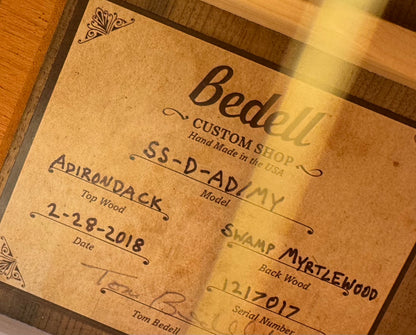 Bedell
CUSTOM SHOP
Hand Made in the USA
SS-D-AD/MY
Model
ADIRONDACK
Top Wood
SWAMP MYRTLEWOOD
Back Wood
2-28-2018
Date
1217017
Serial Number
Tom Bedell